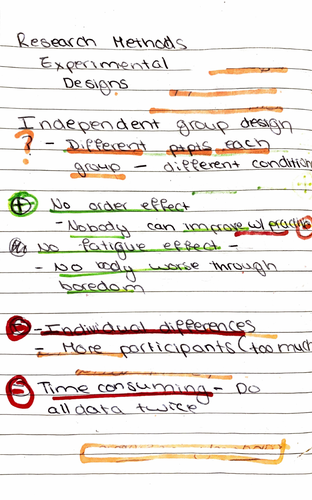 Research Methods
Experimental
Designs
Independent group design
? - Different ptpts each
group - different condition
+ No order effect
- Nobody can improve w/ practic
No fatigue effect -
- No body worse through
boredom
- Individual differences
- More participants (too much
- Time consuming - Do
all data twice